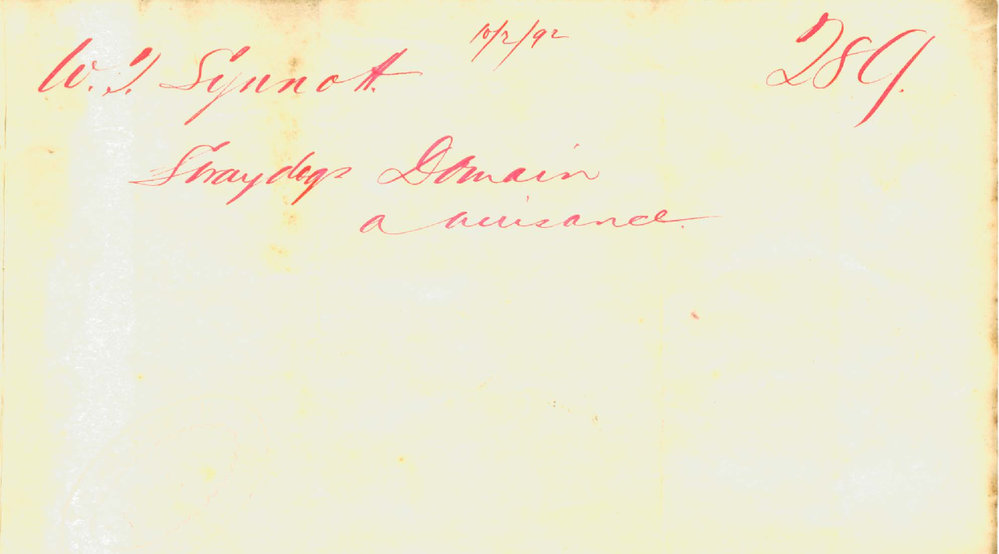 10/2/92
W. T. Synnott 289.
Stray dogs Domain
a nuisance.